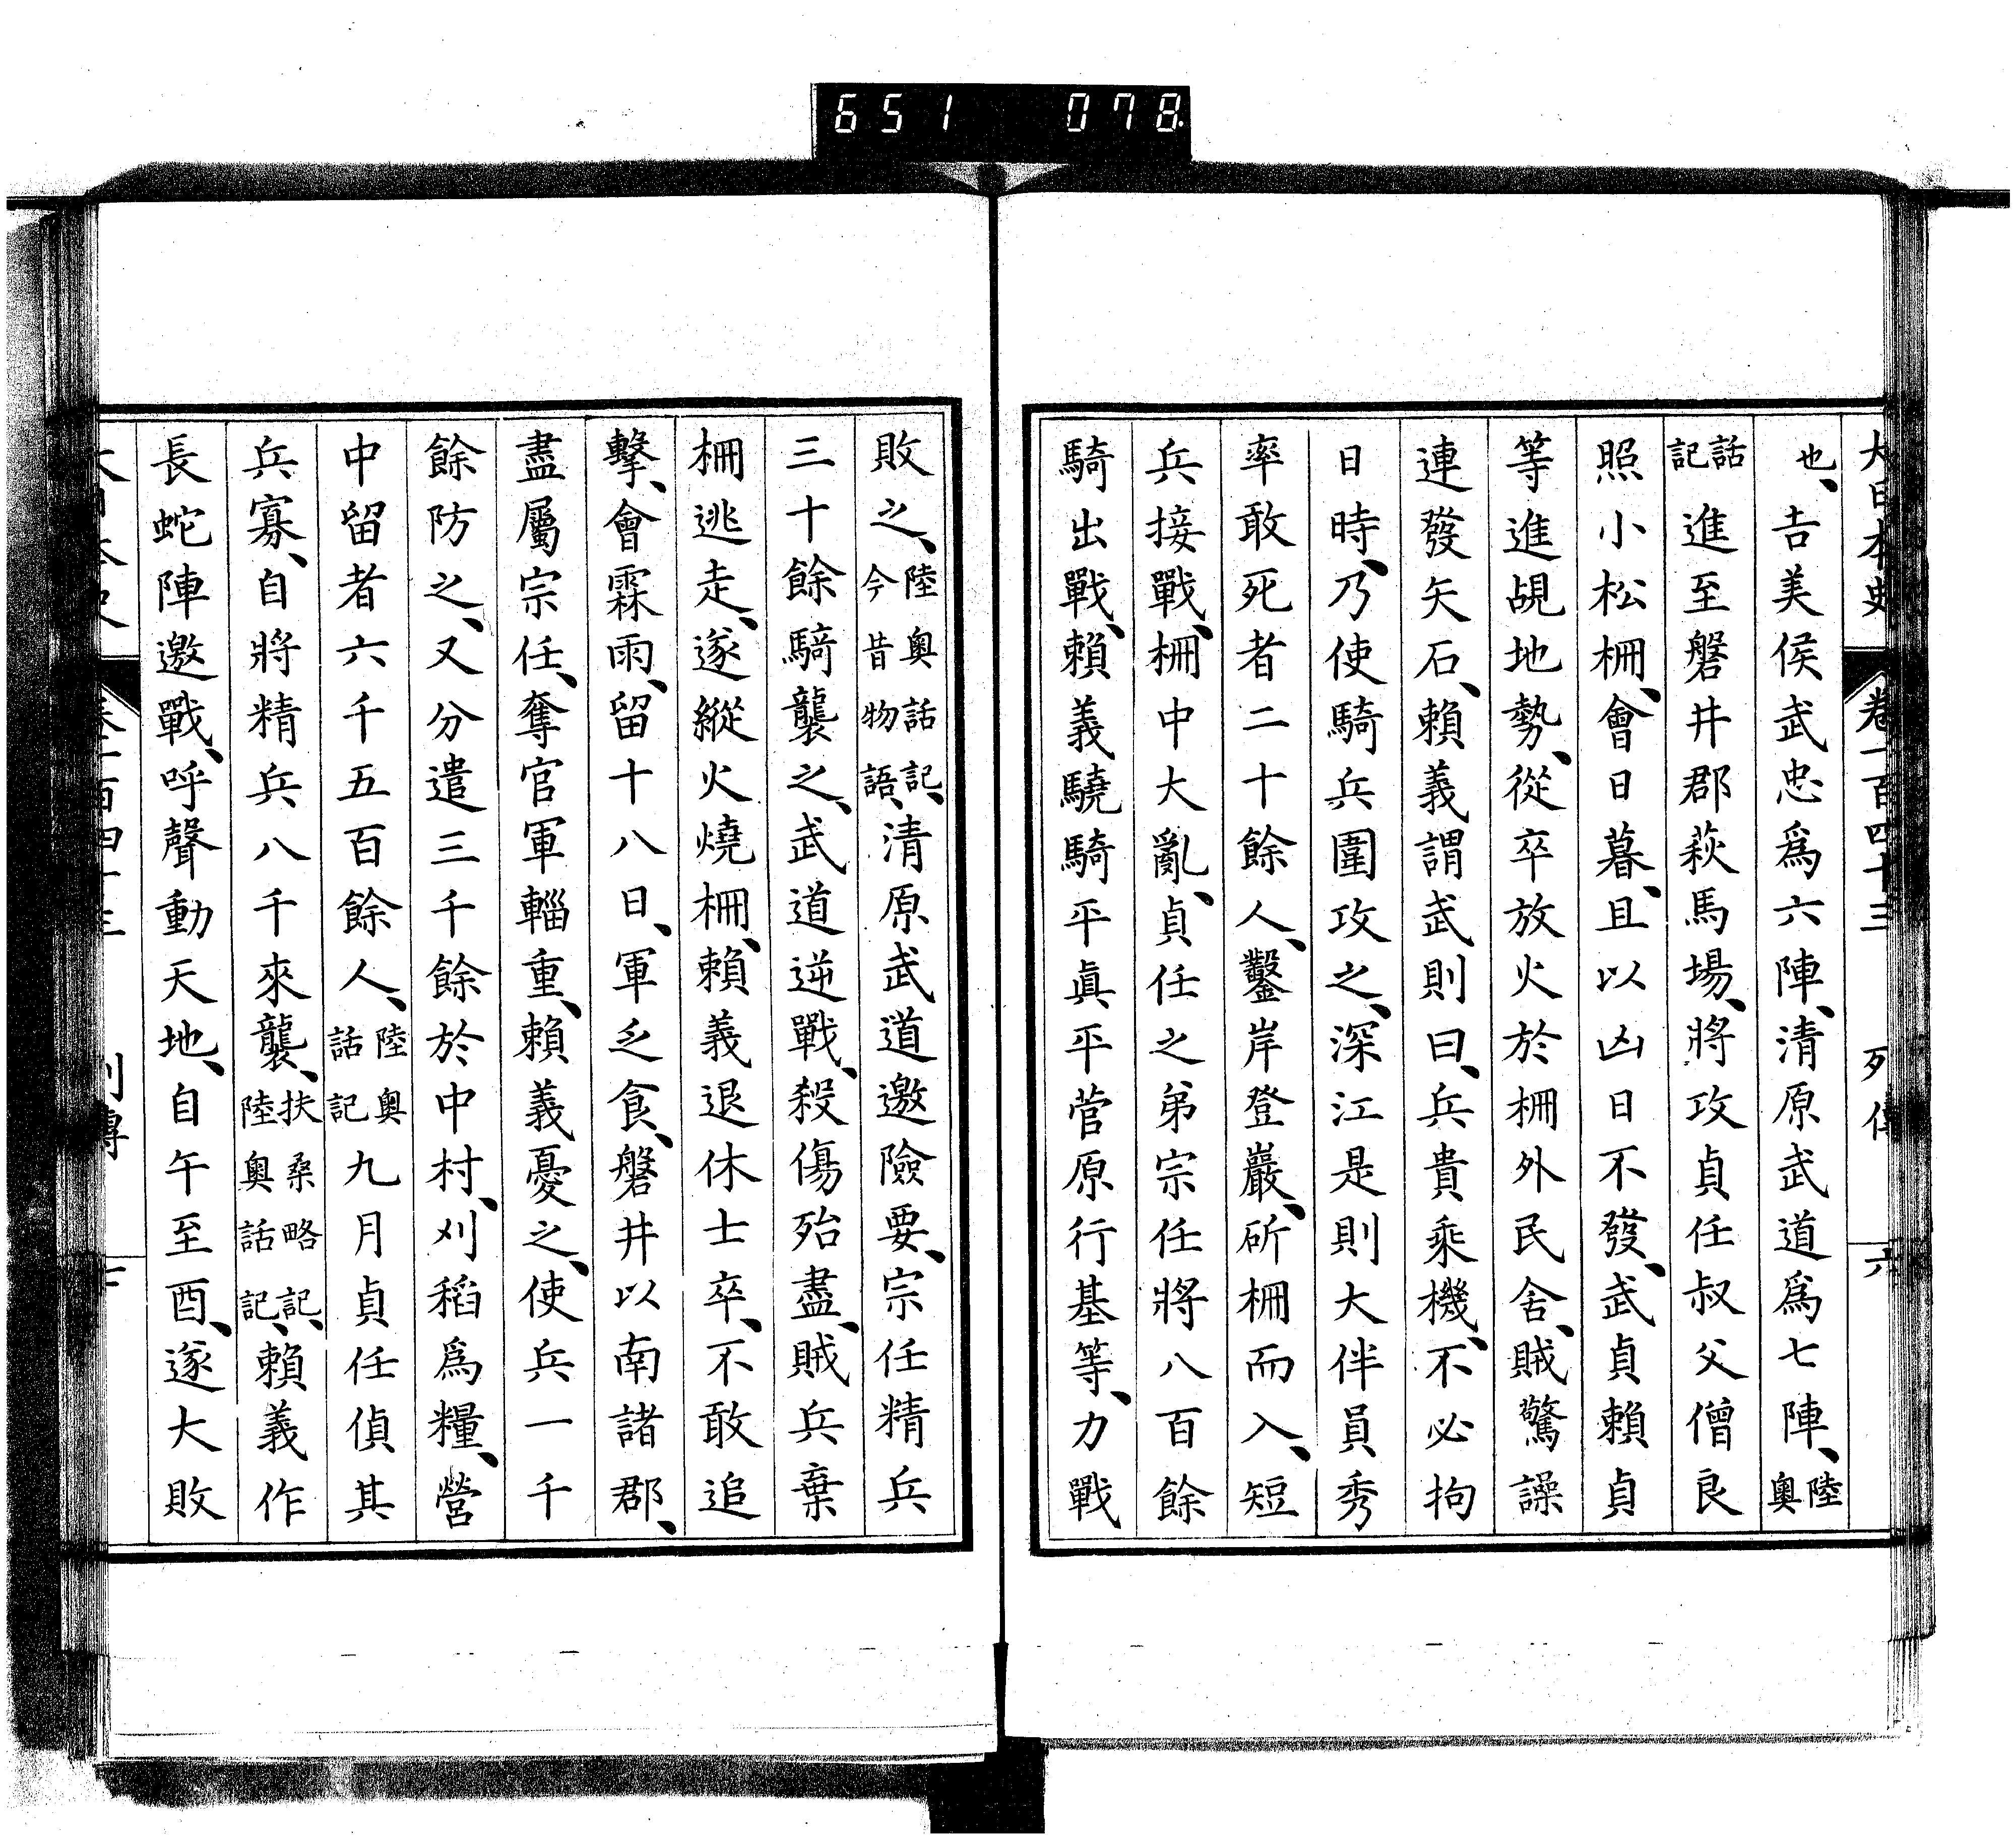 651 078
大日本史 卷一百四十三 列傳 六
也、吉美侯武忠爲六陣、清原武道爲七陣、陸奧
話記進至磐井郡萩馬場、將攻貞任叔父僧良
照小松柵、會日暮、且以凶日不發、武貞賴貞
等進覘地勢、從卒放火於柵外民舍、賊驚譟
連發矢石、賴義謂武則曰、兵貴乘機、不必拘
日時、乃使騎兵圍攻之、深江是則大伴員秀
率敢死者二十餘人、鑿岸登巖、斫柵而入、短
兵接戰、柵中大亂、貞任之弟宗任將八百餘
騎出戰、賴義驍騎平眞平菅原行基等、力戰
敗之、陸奧話記、今昔物語、清原武道邀險要、宗任精兵
三十餘騎襲之、武道逆戰、殺傷殆盡、賊兵棄
柵逃走、遂縱火燒柵、賴義退休士卒、不敢追
擊、會霖雨、留十八日、軍乏食、磐井以南諸郡、
盡屬宗任、奪官軍輜重、賴義憂之、使兵一千
餘防之、又分遣三千餘於中村、刈稻爲糧、營
中留者六千五百餘人、陸奧話記九月貞任偵其
兵寡、自將精兵八千來襲、扶桑略記、陸奧話記、賴義作
長蛇陣邀戰、呼聲動天地、自午至酉、遂大敗